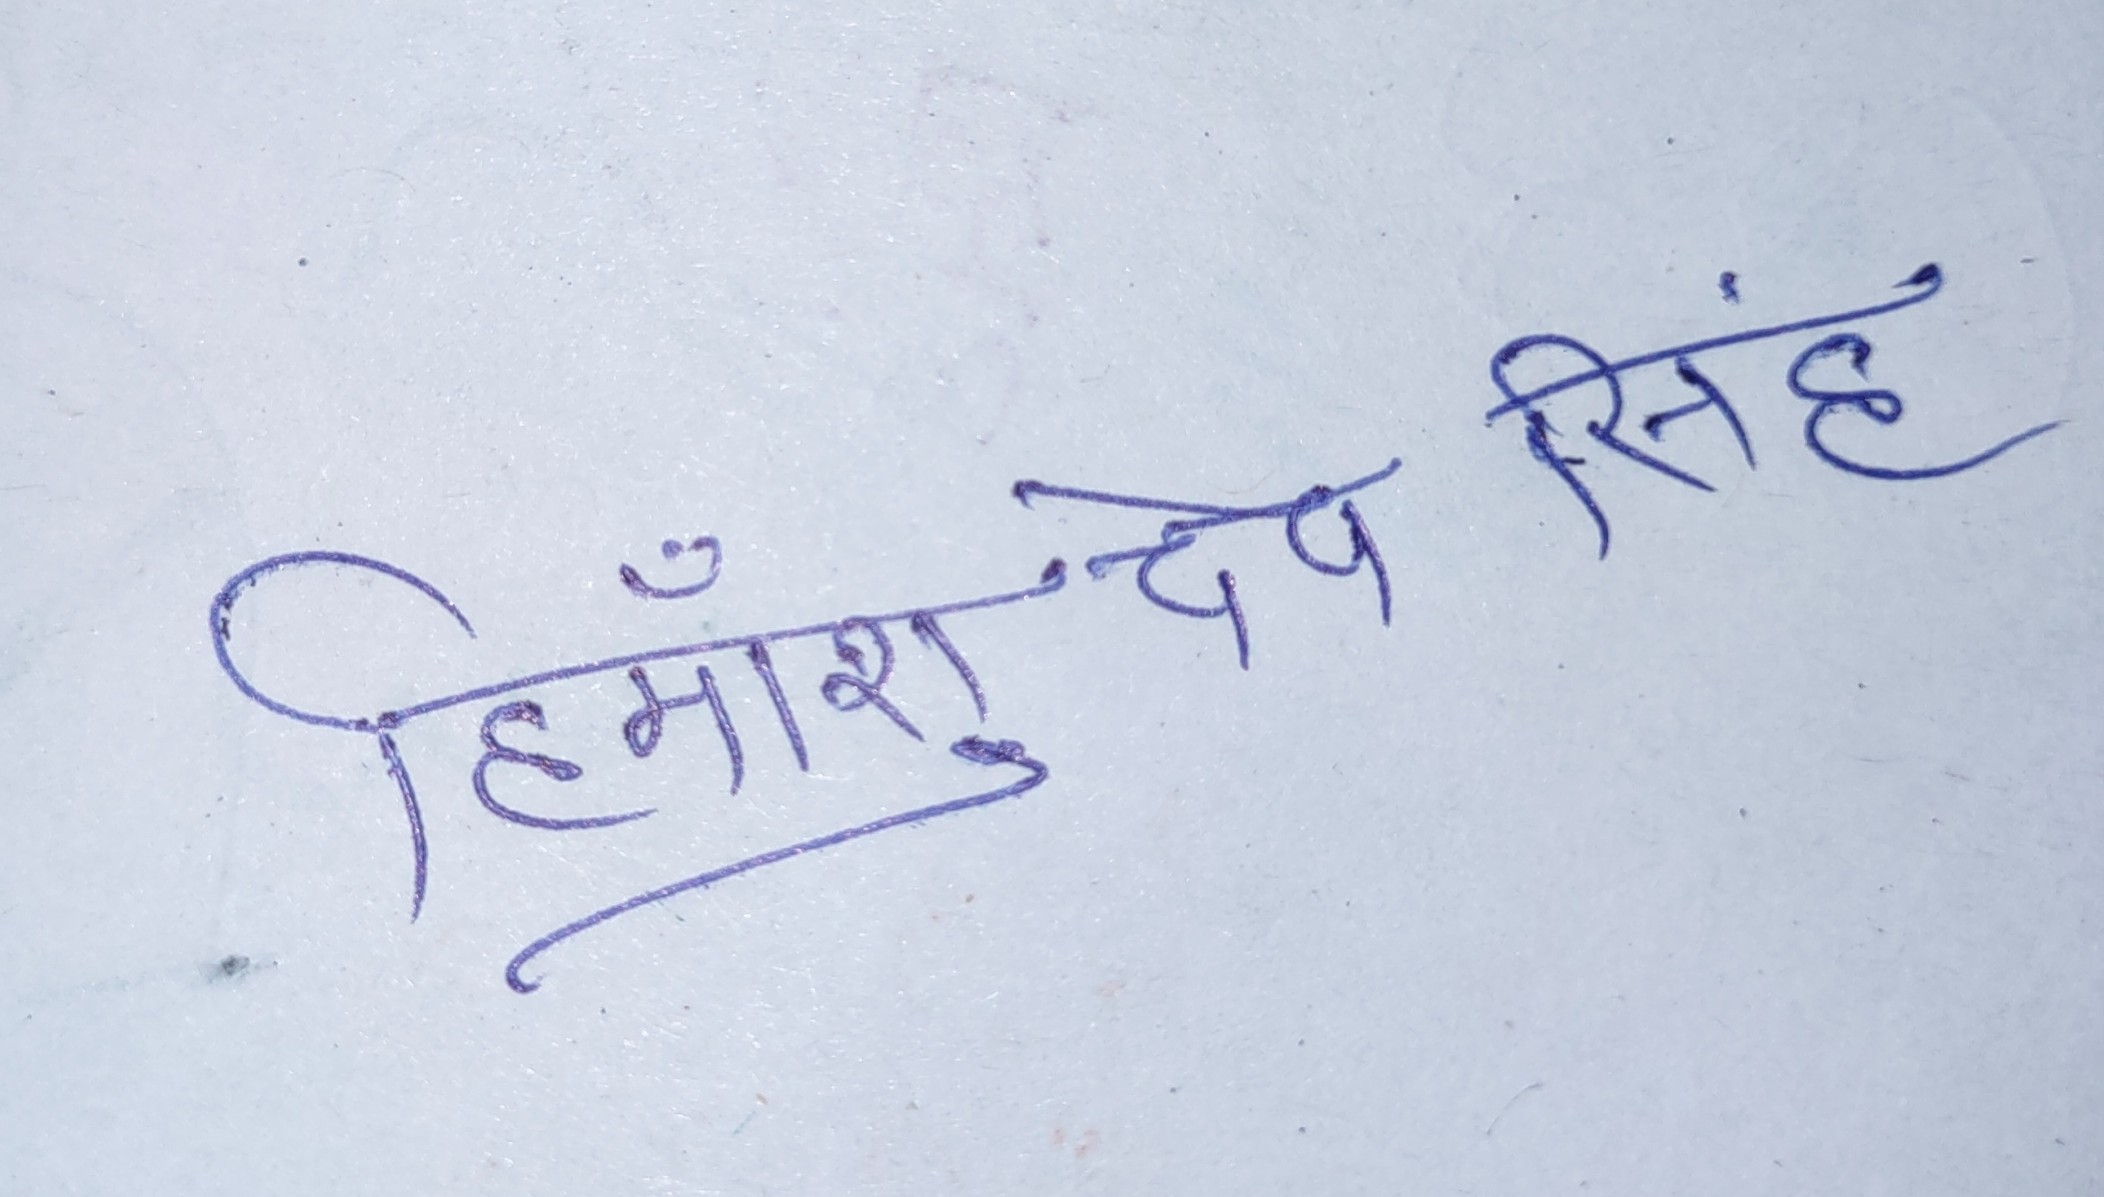 हिमाँशु देव सिंह